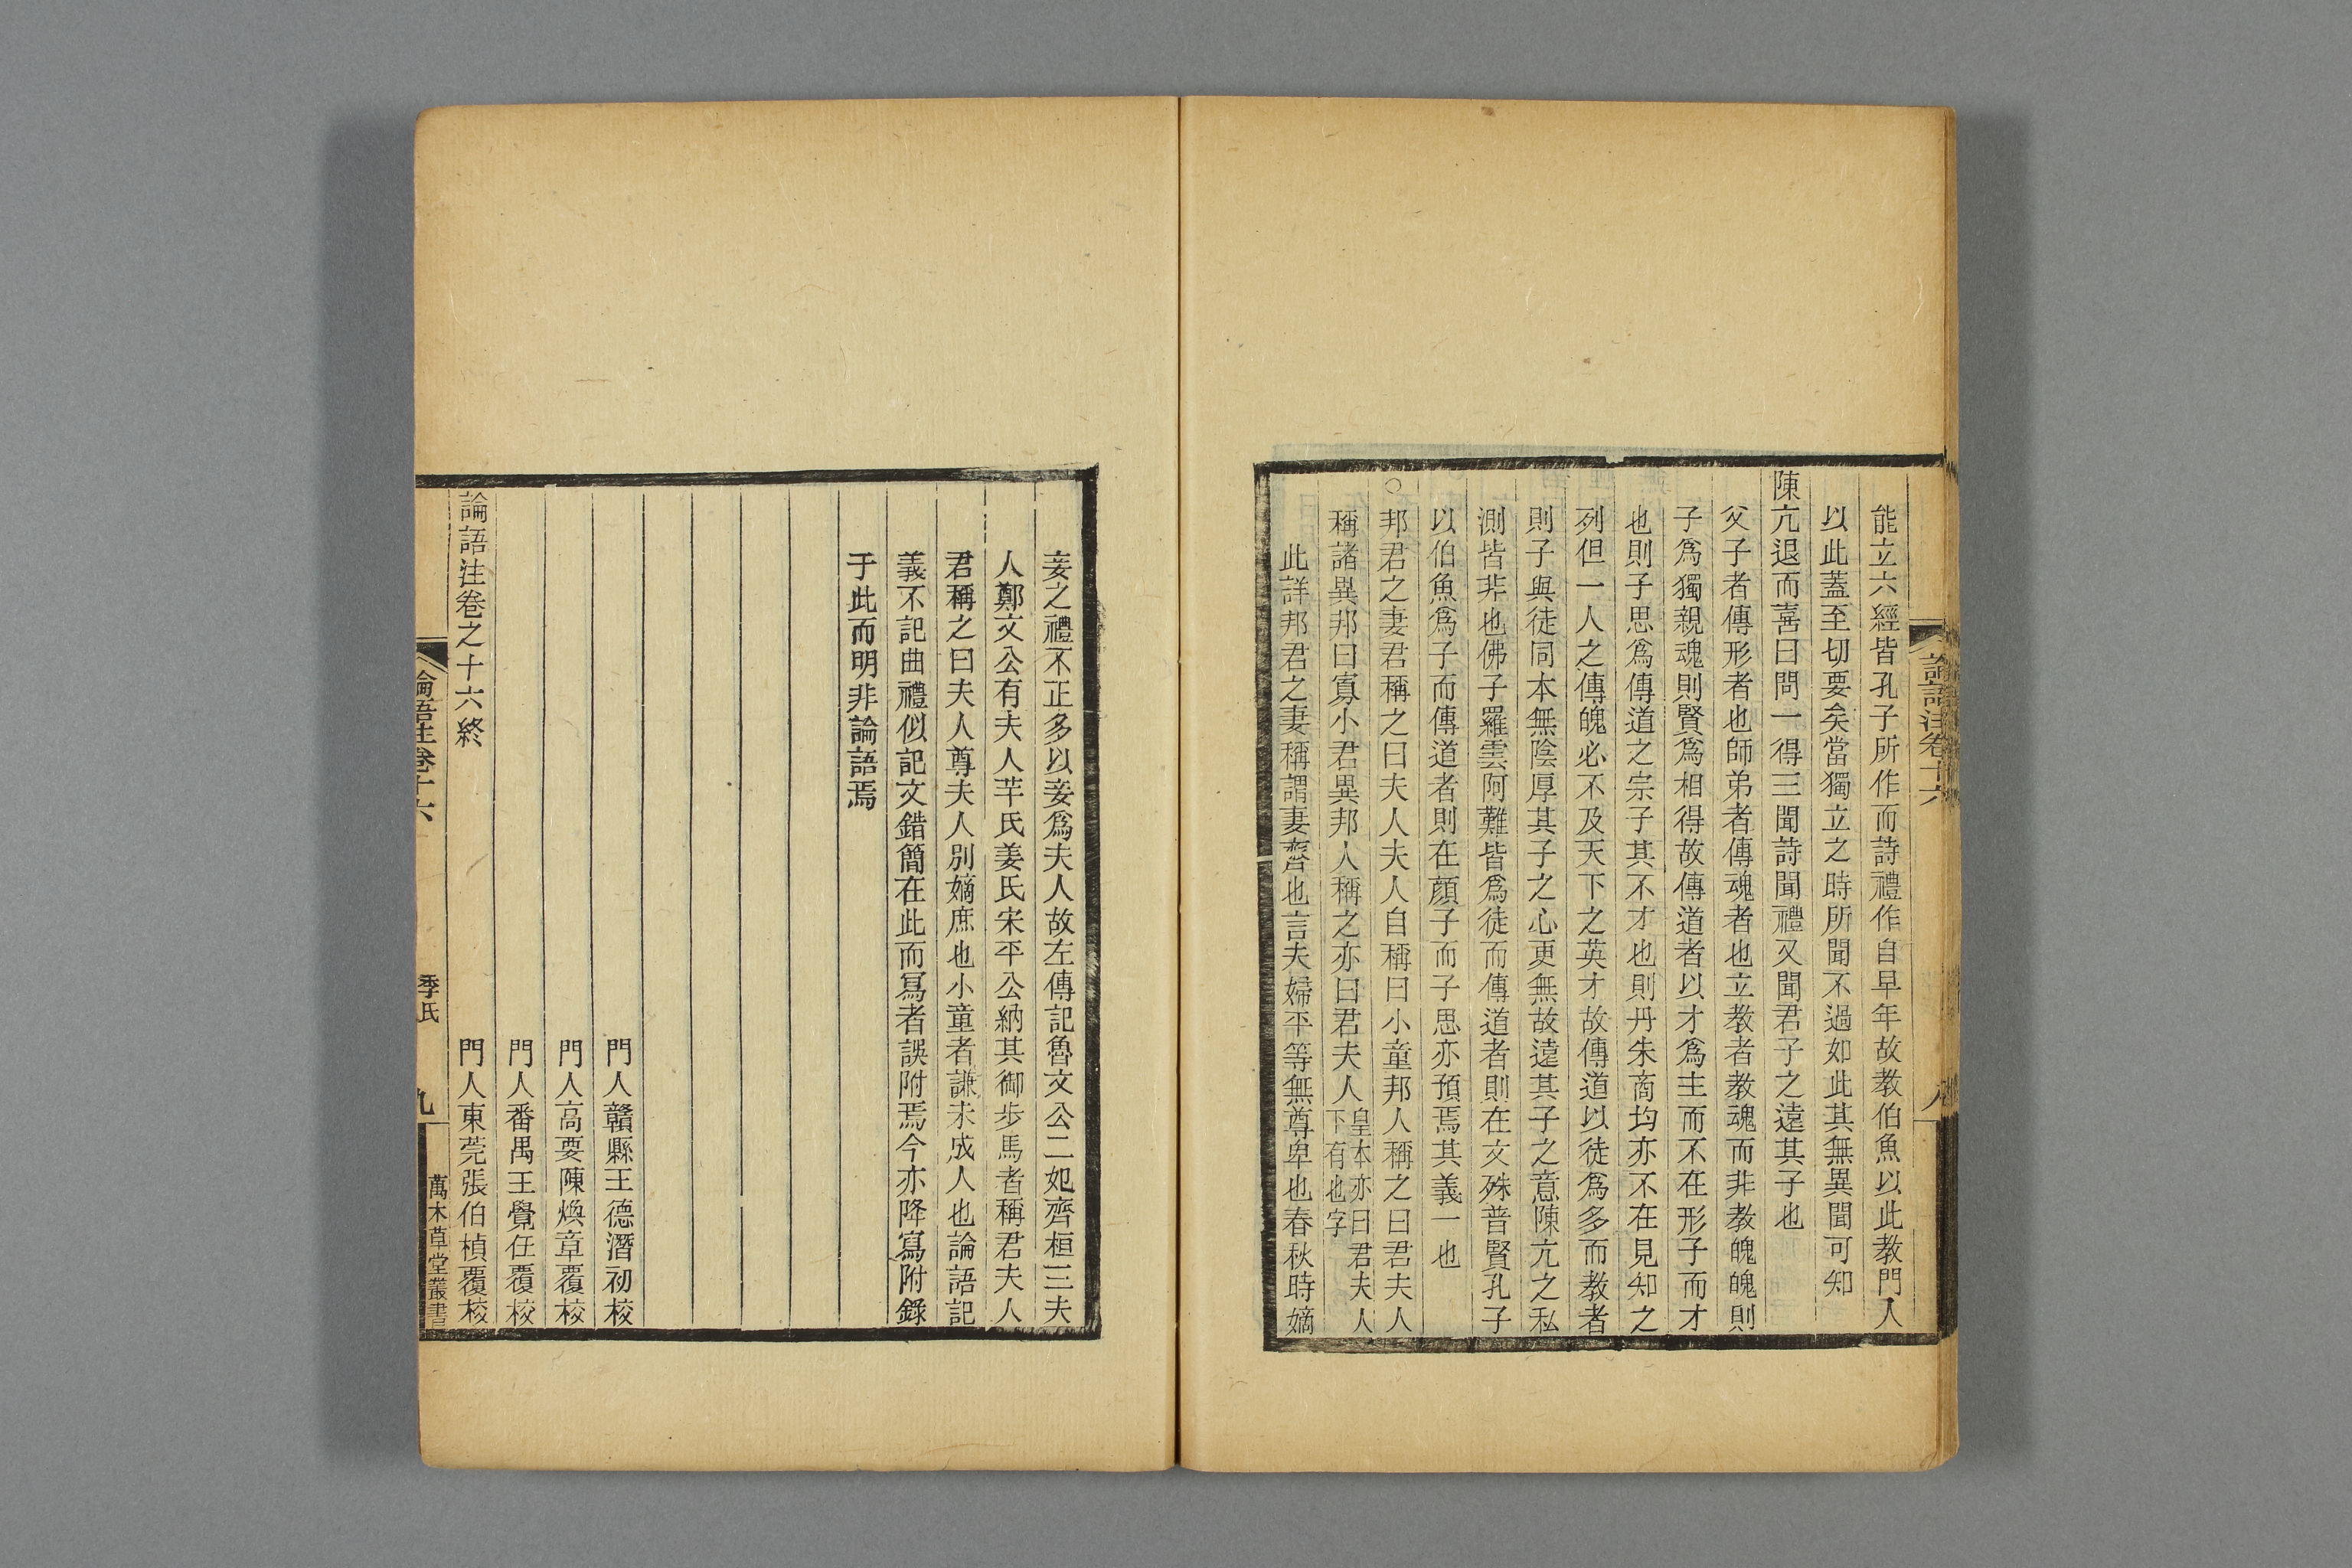 論語注卷十六
八
能立六經皆孔子所作而詩禮作自早年故教伯魚以此教門人
以此蓋至切要矣當獨立之時所聞不過如此其無異聞可知
陳亢退而喜曰問一得三聞詩聞禮又聞君子之遠其子也
父子者傳形者也師弟者傳魂者也立教者教魂而非教魄魄則
子爲獨親魂則賢爲相得故傳道者以才爲主而不在形子而才
也則子思爲傳道之宗子其不才也則丹朱商均亦不在見知之
列但一人之傳魄必不及天下之英才故傳道以徒爲多而教者
則子與徒同本無陰厚其子之心更無故遠其子之意陳亢之私
測皆非也佛子羅雲阿難皆爲徒而傳道者則在文殊普賢孔子
以伯魚爲子而傳道者則在顏子而子思亦預焉其義一也
○邦君之妻君稱之曰夫人夫人自稱曰小童邦人稱之曰君夫人
稱諸異邦曰寡小君異邦人稱之亦曰君夫人皇本亦曰君夫人下有也字
此詳邦君之妻稱謂妻齊也言夫婦平等無尊卑也春秋時嫡
妾之禮不正多以妾爲夫人故左傳記魯文公二妃齊桓三夫
人鄭文公有夫人芊氏姜氏宋平公納其御步馬者稱君夫人
君稱之曰夫人尊夫人別嫡庶也小童者謙未成人也論語記
義不記曲禮似記文錯簡在此而寫者誤附焉今亦降寫附錄
于此而明非論語焉
門人贛縣王德潛初校
門人高要陳煥章覆校
門人番禺王覺任覆校
論語注卷之十六終
門人東莞張伯楨覆校
論語注卷十六
季氏
九
萬木草堂叢書